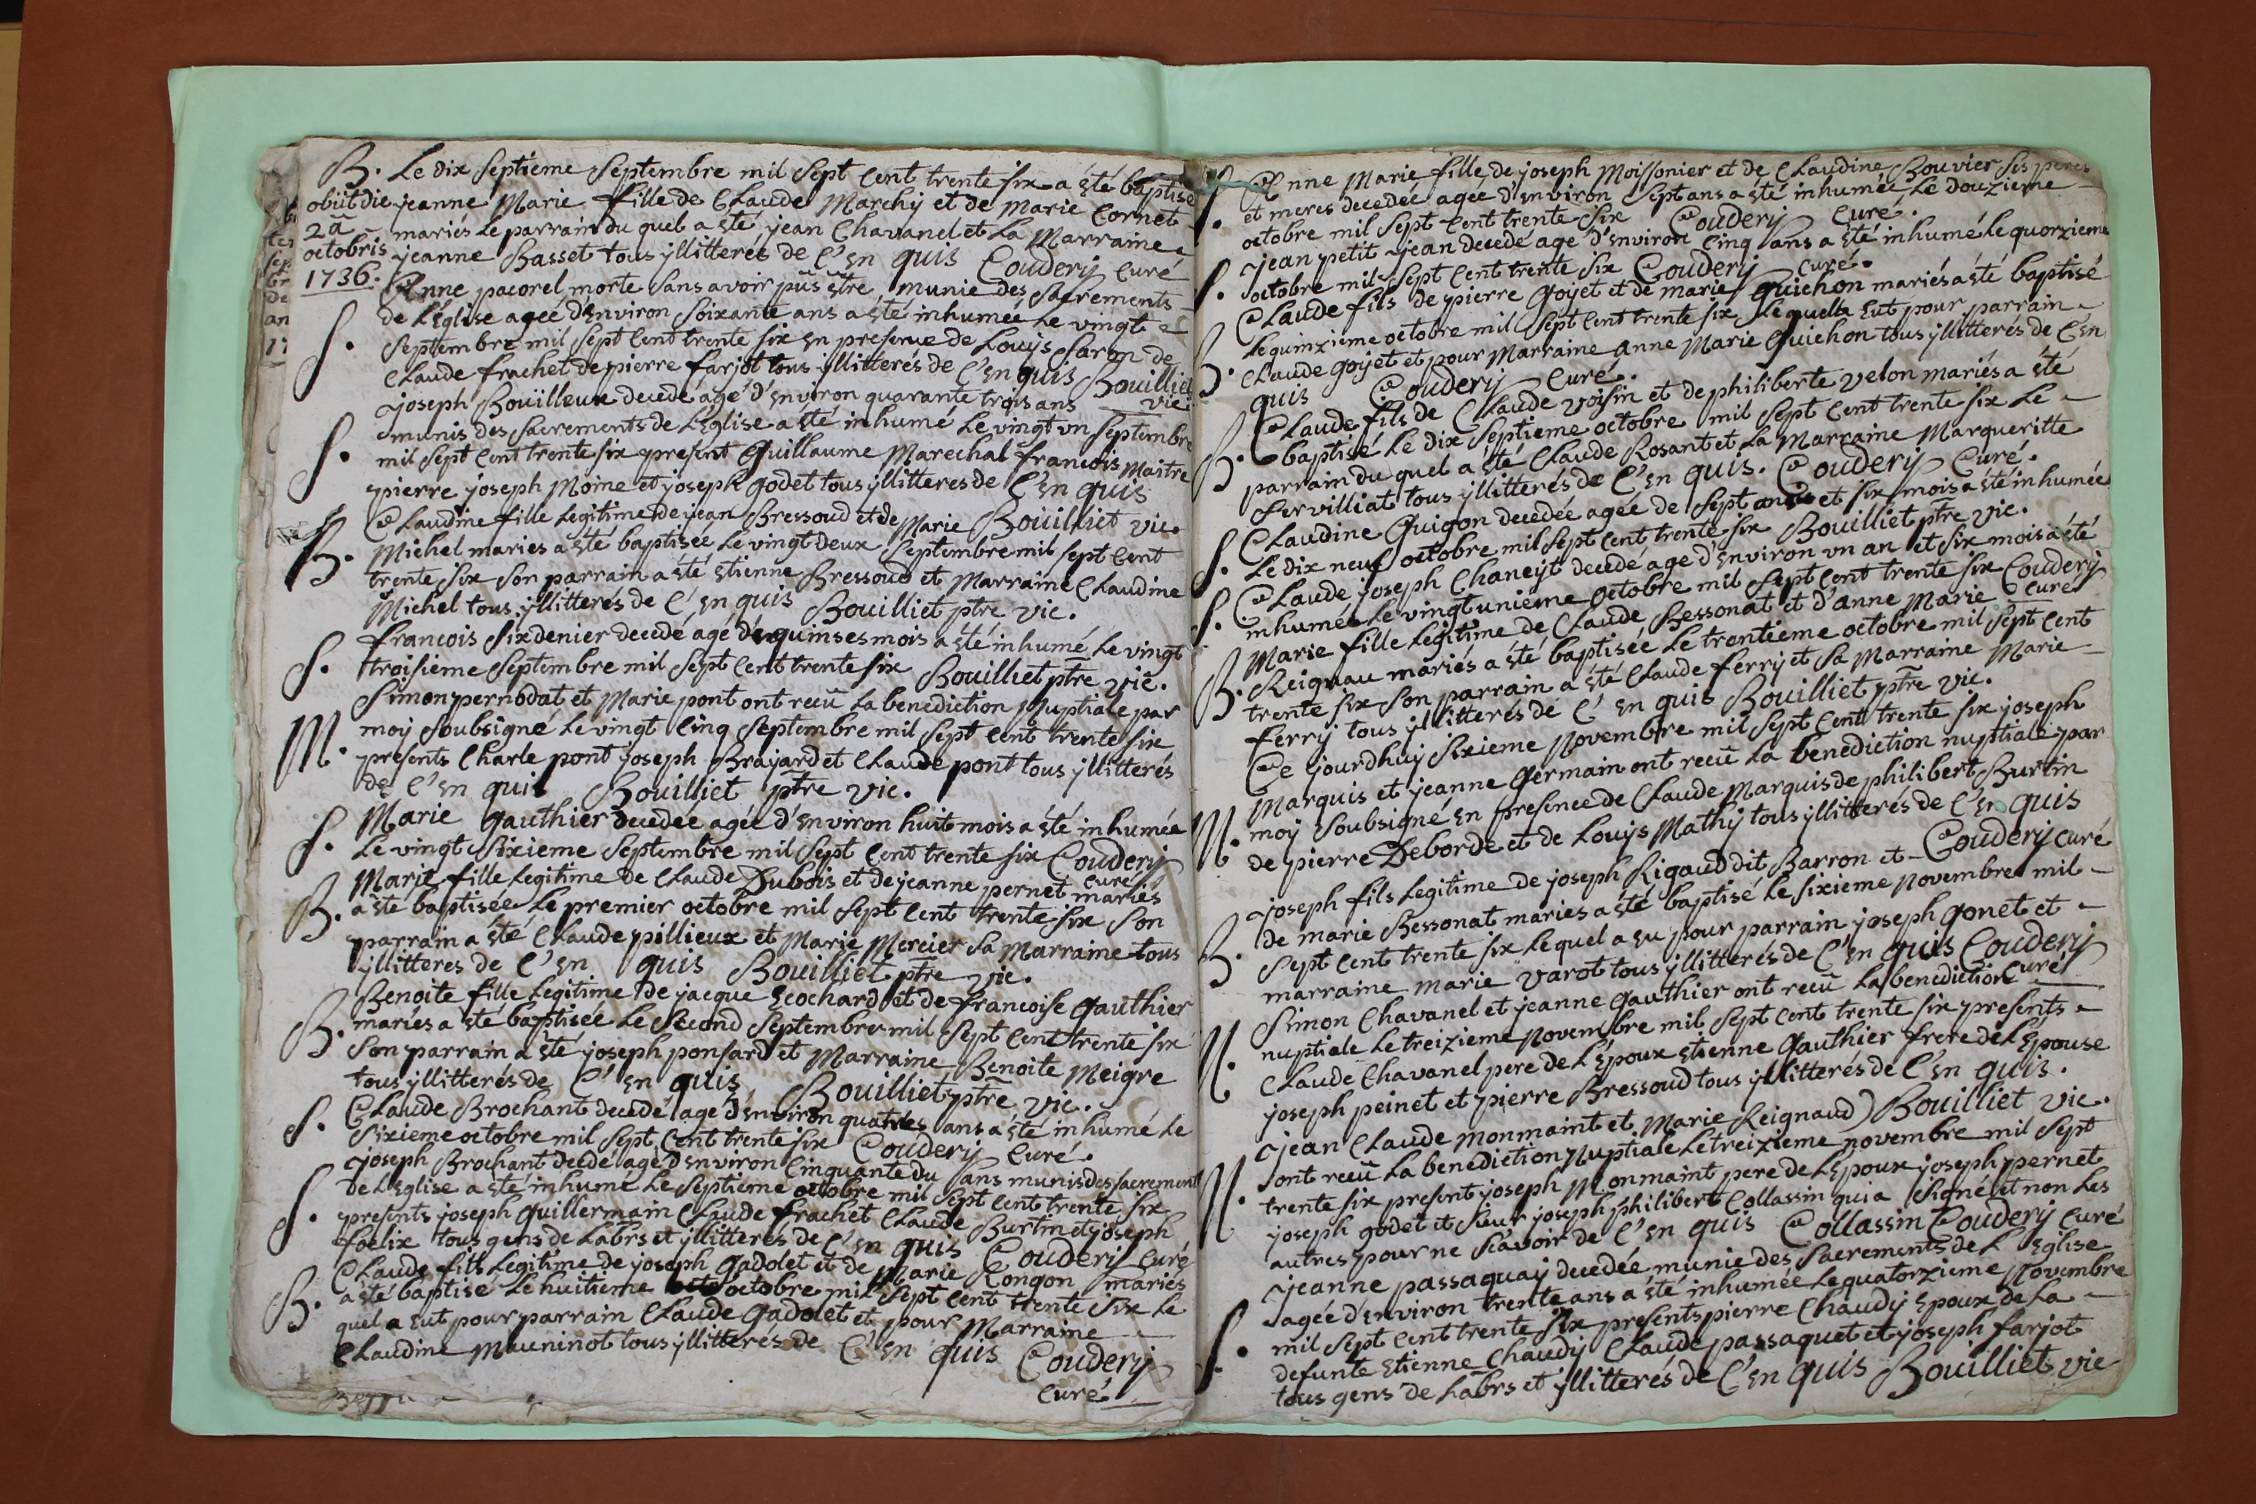 B. Le dix septieme septembre mil sept cent trente six a été baptisé
obiit die jeanne Marie fille de Claude Marchy et de Marie Cornet
2a mariés le parrain du quel a été jean Chavanel et la Marraine
octobris jeanne Basset tous yllitterés de C'en quis Couderij Curé
1736. Anne pacorel morte sans avoir pûs être munie des sacrements
de L'Eglise agée d'environ soixante ans a été inhumée Le vingt
S. septembre mil sept cent trente six en presence de Louÿs Saron de
Claude frachet de pierre farjot tous yllitterés de C'en quis Bouilliet
joseph Boüilleux decedé agé d'environ quarante trois ans vic.
S. munis des sacrements de L'Eglise a été inhumé Le vingt vn septembre
mil sept cent trente six present Guillaume Marechal francois Maitre
pierre joseph Moine et joseph godet tous yllitteres de C'en quis
Claudine fille Legitime de jean Bressoud et de Marie Boüilliet vic.
B. Michel maries a été baptisée Le vingt deux septembre mil sept cent
trente six son parrain a été Etienne Bressoud et Marraine Claudine
Michel tous yllitterés de C'en quis Bouilliet ptre vic.
S. francois Sixdenier decedé agé de quinses mois a été inhumé Le vingt
troisieme septembre mil sept cent trente six Bouilliet ptre vic.
Simon pernodat et Marie pont ont recû La benediction Nuptiale par
M. moy soubsigné Le vingt cinq septembre mil sept cent trente six
presents Charle pont joseph Brajard et Claude pont tous yllitterés
de C'en quis Bouilliet ptre vic.
S. Marie Gauthier decedee agée d'environ huit mois a été inhumée
Le vingt sixieme septembre mil sept cent trente six Couderij
Marie fille Legitime de Claude Dubois et de jeanne pernet mariés Curé
B. a été baptisée Le premier octobre mil sept cent trente six son
parrain a été Claude pillieux et Marie Mercier sa Marraine tous
yllitteres de C'en quis Bouilliet ptre vic.
Benoite fille Legitime de jacque Ecochard et de francoise Gauthier
B. mariés a été baptisée Le second septembre mil sept cent trente six
son parrain a été joseph ponsard et Marraine Benoite Meigre
tous yllitterés de C'en quis Bouilliet ptre vic.
S. Claude Brochant decedé agé d'environ quatres ans a été inhumé Le
sixieme octobre mil sept cent trente six Couderij Curé.
joseph Brochant decdé agé d'environ cinquante du sans munis des sacrement
S. de L'Eglise a été inhume Le septieme octobre mil sept cent trente six
presents joseph Guillermain Claude frachet Claude Burtin et joseph
foelix tous gens de Labrs et yllitterés de C'en quis Couderij Curé
Claude fils Legitime de joseph Gadolet et de Marie Rongon mariés
B. a été baptisé Le huitieme octobre mil sept cent trente six Le
quel a eut pour parrain Claude Gadolet et pour Marraine
Claudine Mauninot tous yllitterés de C'en quis Couderij
Curé.
S. Anne Marie fille de joseph Moissonier et de Claudine Bouvier ses peres
et meres decedée agée d'environ sept ans a été inhumée Le douzieme
octobre mil sept cent trente six Couderij Curé.
S. jean petit jean decedé agé d'environ cinq ans a été inhumé Le quorzieme
octobre mil sept cent trente six Couderij Curé.
Claude fils de pierre Goyet et de marie Guichon mariés a été baptisé
Le quinzieme octobre mil sept cent trente six Lequel a Eut pour parrain
B. Claude goyet et pour Marraine anne Marie Guichon tous yllitterés de C'en
quis Couderij Curé.
Claude fils de Claude voisin et de philiberte velon mariés a été
B. baptisé Le dix septieme octobre mil sept cent trente six Le
parrain du quel a été Claude Rosant et La Marraine Margueritte
Servilliat tous yllitterés de C'en quis. Couderij Curé.
S. Claudine Guigon decedée agée de sept ans et six mois a été inhumée
Le dix neuf octobre mil sept cent trente six Bouilliet ptre vic.
S. Claude joseph Chaneyt decedé agé d'environ vn an et six mois a été
inhumé Le vingt unieme octobre mil sept cent trente six Couderij
Marie fille Legitime de Claude Bessonat et d'anne Marie Curé
B. Reignau mariés a été baptisée Le trentieme octobre mil sept cent
trente six son parrain a été Claude ferry et sa Marraine Marie
ferry tous yllitterés de C'en quis Bouilliet ptre vic.
Ce jourdhuy sixieme Novembre mil sept cent trente six joseph
Marquis et jeanne Germain ont recû La benediction nuptiale par
M. moy soubsigné en presence de Claude Marquis de philibert Burtin
de pierre Deborde et de Louÿs Mathy tous yllitterés de C'en quis
Couderij curé
joseph fils Legitime de joseph Rigaud dit Barron et
B. de marie Bessonat maries a été baptisé Le sixieme novembre mil
sept cent trente six Lequel a eu pour parrain joseph Gonet et
marraine marie varot tous yllitterés de C'en quis Couderij
Simon Chavanel et jeanne Gauthier ont recû La benediction Curé
M. nuptiale Le treizieme novembre mil sept cent trente six presents
Claude Chavanel pere de L'Epoux Etienne Gauthier frere de L'Epouse
joseph peinet et pierre Bressoud tous yllitterés de C'en quis.
jean Claude monmaint et Marie Reignaud Bouilliet vic.
M. ont recû La benediction Nuptiale Le treizieme novembre mil sept
trente six present joseph Monmaint pere de L'Epoux joseph pernet
joseph godet et sieur joseph philibert Collassin qui a signé et non Les
autres pour ne sçavoir de C'en quis Collassin Couderij curé
jeanne passaquay decedée munie des sacrements de L'Eglise
agée d'environ trente ans a été inhumée Le quatorzieme Novembre
S. mil sept cent trente six presents pierre Chaudy Epoux de La
defunte Etienne Chaudy Claude passaquet et joseph farjot
tous gens de Labrs et yllitterés de C'en quis Bouilliet vic